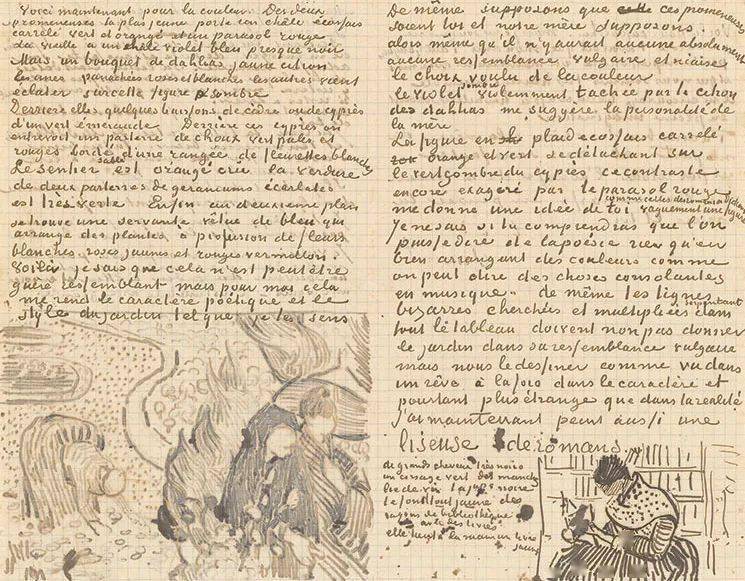 Voici maintenant pour la couleur. Des deux
promeneuses la plus jeune porte un châle écossais
carrelé vert et orangé et un parasol rouge
la vieille a un châle violet bleu presque noir
Mais un bouquet de dahlias jaune citron
les unes panachées roses et blanches les autres vient
éclater sur cette figure sombre
Derrière elles quelques buissons de cèdre ou de cyprès
d'un vert émeraude Derrière ces cyprès on
entrevoit un parterre de choux verts pales et
rouges bordé d'une rangée de fleurettes blanches
Le sentier sablé est orangé cru la verdure
de deux parterres de geraniums écarlates
est très verte Enfin au deuxieme plan
se trouve une servante vêtue de bleu qui
arrange des plantes à profusion de fleurs
blanches roses jaunes et rouges vermillon.
Voilà je sais que cela n'est peut être
guère ressemblant mais pour moi cela
me rend le caractère poétique et le
style du jardin tel que je les sens
De même supposons que ces promeneuses
soient toi et notre mère supposons
alors même qu'il n'y aurait aucune absolument
aucune ressemblance vulgaire et niaise
le choix voulu de la couleur
le violet sombre violemment tachée par le citron
des dahlias me suggère la personalité de
la mère
La figure en plaid ecossais carrelé
orangé et vert se détachant sur
le vert sombre du cyprès ce contraste
encore exagéré par le parasol rouge
me donne une idée de toi vaguement une figure
comme celles de
Je ne sais si tu comprendras que l'on
puisse dire de la poésie rien qu'en
bien arrangeant des couleurs comme
on peut dire des choses consolantes
en musique. de même les lignes
bizarres cherchées et multipliées serpentant dans
tout le tableau doivent non pas donner
le jardin dans sa ressemblance vulgaire
mais nous le dessiner comme vu dans
un rêve à la fois dans le caractère et
pourtant plus étrange que dans la réalité
j'ai maintenant peint aussi une
liseuse de romans.
de grands cheveux très noirs
un corsage vert des manches
lie de vin la jupe noire
le fond tout jaune des
rayons de bibliothèque
avec des livres
elle tient en main un livre
jaune